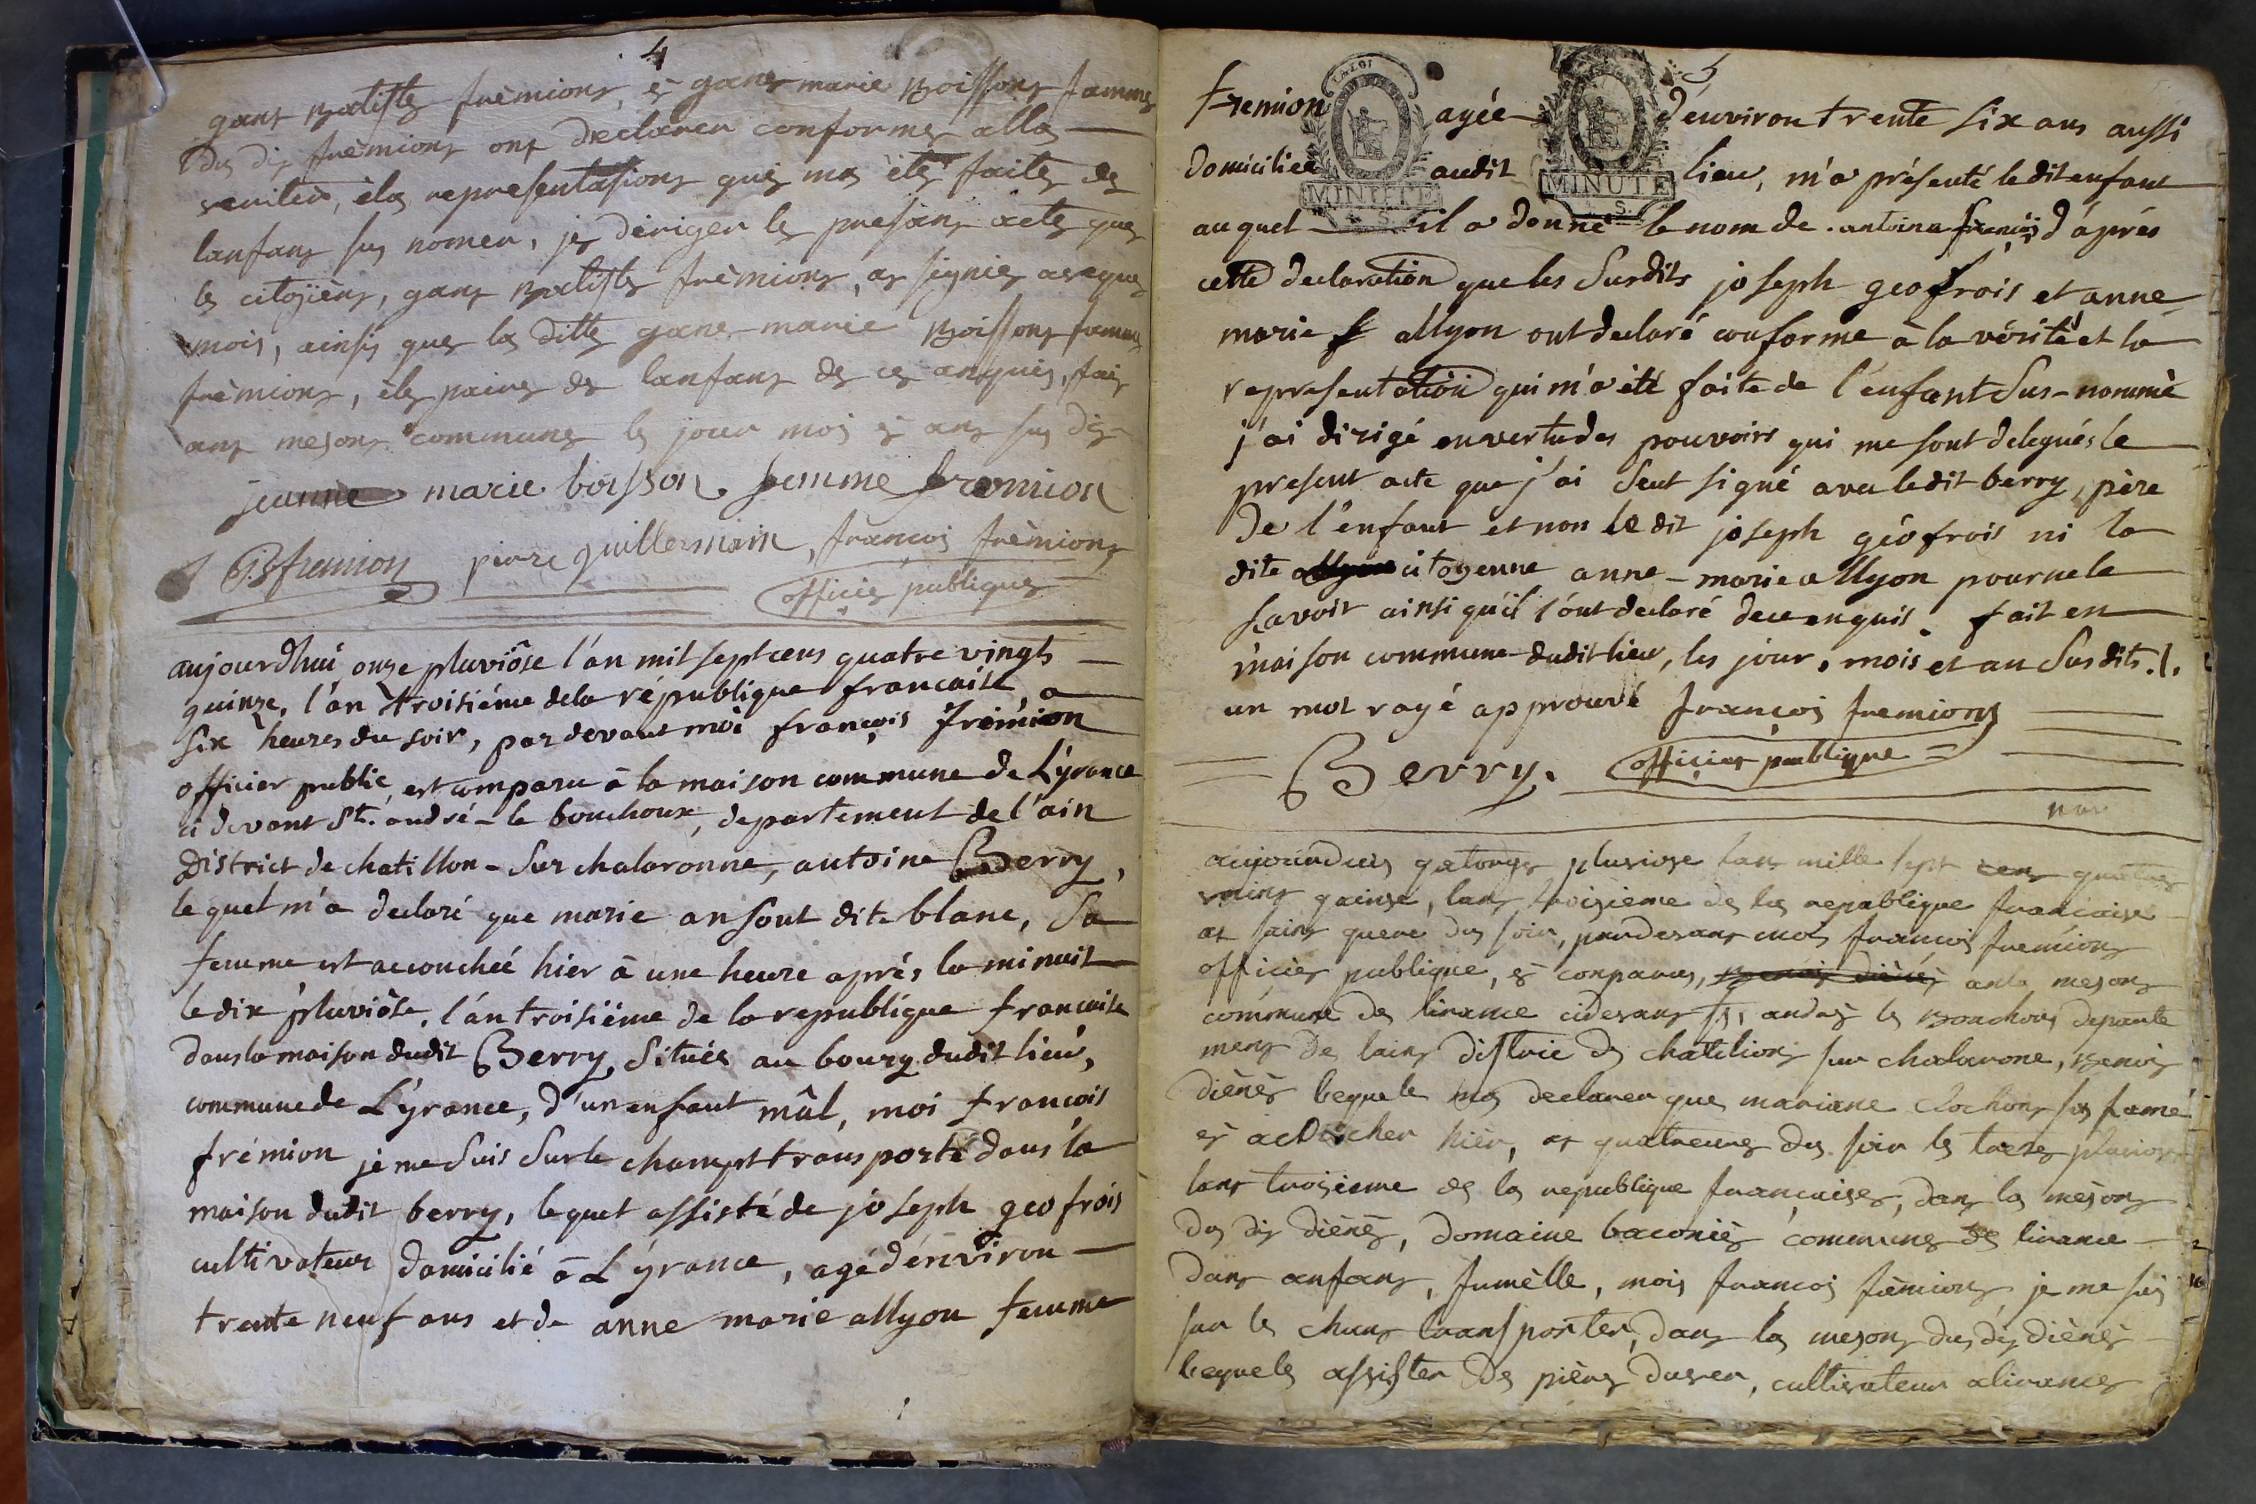 4
gant Batiste fremiont, é gane marie Boissont famme
du di fremiont ont declarer conforme alla
veriter, éla representasiont qui ma éte faite de
lanfant sus nomer, je dériger le presant acte que
le citoiient, gant Batiste fremiont, at signié aveque
moi, ainsi que la ditte gane marie Boissont famme
fremiont, éle paire de lanfant de ce anquis, fait
ant mesont commune le jour moi é ant sus di
jeanne marie boisson femme fremion
JB fremion pierre guillermain, françois fremiont
officié publique
aujourdhui onze pluviôse l'an mil sept cens quatre vingts
quinze, l'an troisième de la république francaise, a
six heures du soir, par devant moi françois Frémion
officier public, est comparu à la maison commune de L'yrance
ci devant St. andré-le bouchoux, departement de l'ain
District de chatillon-sur chalaronne, antoine Berry,
lequel m'a declaré que marie ansout dite blanc, Sa
femme est accouchée hier à une heure après la minuit
le dix pluviôse, l'an troisième de la republique francaise
dans la maison dudit Berry, située au bourg dudit lieu,
commune de L'yrance, d'un enfant mâl, moi françois
frémion je me suis sur le champt transporté dans la
maison dudit berry, lequel assisté de joseph geofrois
cultivateur domicilié à L'yrance, agé d'environ
trente neuf ans et de anne marie allyon femme
5
Fremion agée d'environ trente six ans aussi
Domiciliée audit lieu, m'a présenté le dit enfant
MINUTE
MINUTE
auquel il a donné le nom de antoine francois d'après
cette declaration que les Surdits joseph geofrois et anne
marie allyon ont declaré conforme à la vérité et la
representation qui m'a été faite de l'enfant Sus-nommé
j'ai dirigé en vertu des pouvoirs qui me sont delegués le
present acte que j'ai Seul signé avec ledit berry, père
de l'enfant et non le dit joseph géofrois ni la
dite citoyenne anne-marie allyon pour ne le
savoir ainsi qu'il l'ont declaré de ce enquis. fait en
maison commune dudit lieu, les jour, mois et an Susdits.
un mot rayé approuvé françois fremiont
Berry. officier publique
aujourduis quatorze pluviose lant mille sept cent quatre
vint quinse, lant troisieme de la republique francaise
at saint queure du soir, pardevant moi françois fremiont
officié publique, é conparus, anla mesont
commune de lirance cidevant St. andré le Bouchous departe
ment de laint distric de chatiliont sur chalarone, Benoi
diéné lequele ma declarer que mariane Clochont sa famé
é acoucher hièr, at quatreeure du soir le treze pluviose
lant troisieme de la republique françaises, dans la mesont
du di diéné, domaine baconié commune de lirance
dant anfant, fumèlle, mois francoi fremiont je me sui
sur le chant transporter, dans la mesont du di diéné
lequele assister de pière duver, cultivateur alirance